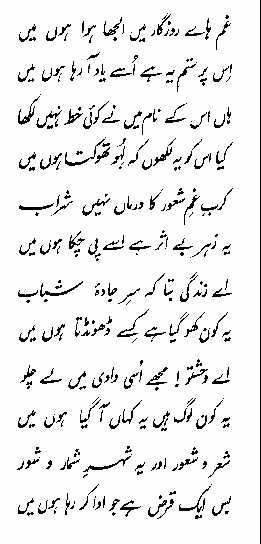 غم ہاے روزگار میں الجھا ہوا ہوں میں
اِس پر ستم یہ ہے اُسے یاد آ رہا ہوں میں
ہاں اس کے نام میں نے کوئی خط نہیں لکھا
کیا اس کو یہ لکھوں کہ لہو تھوکتا ہوں میں
کربِ غمِ شعور کا درماں نہیں شراب
یہ زہر بے اثر ہے اسے پی چکا ہوں میں
اے زندگی بتا کہ سرِ جادۂ شباب
یہ کون کھو گیا ہے کسے ڈھونڈتا ہوں میں
اے وحشتو! مجھے اسی وادی میں لے چلو
یہ کون لوگ ہیں یہ کہاں آ گیا ہوں میں
شعر و شعور اور یہ شہرِ شمار و شور
بس ایک قرض ہے جو ادا کر رہا ہوں میں